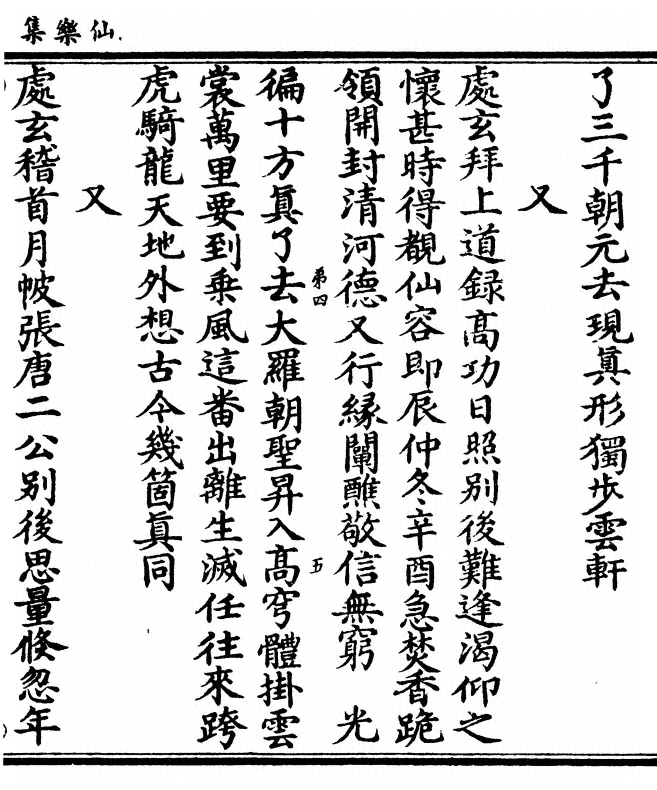 仙樂集
了三千朝元去現眞形獨步雲軒
又
處玄拜上道録髙功日照別後難逢渴仰之
懷甚時得覩仙容即辰仲冬辛酉急焚香跪
領開封清河德又行緣闡醮敬信無窮 光
第四 五
徧十方眞了去大羅朝聖昇入髙穹體掛雲
裳萬里要到乗風這畨出離生滅任往來跨
虎騎龍天地外想古今幾箇眞同
又
處玄稽首月帔張唐二公別後思量倐忽年